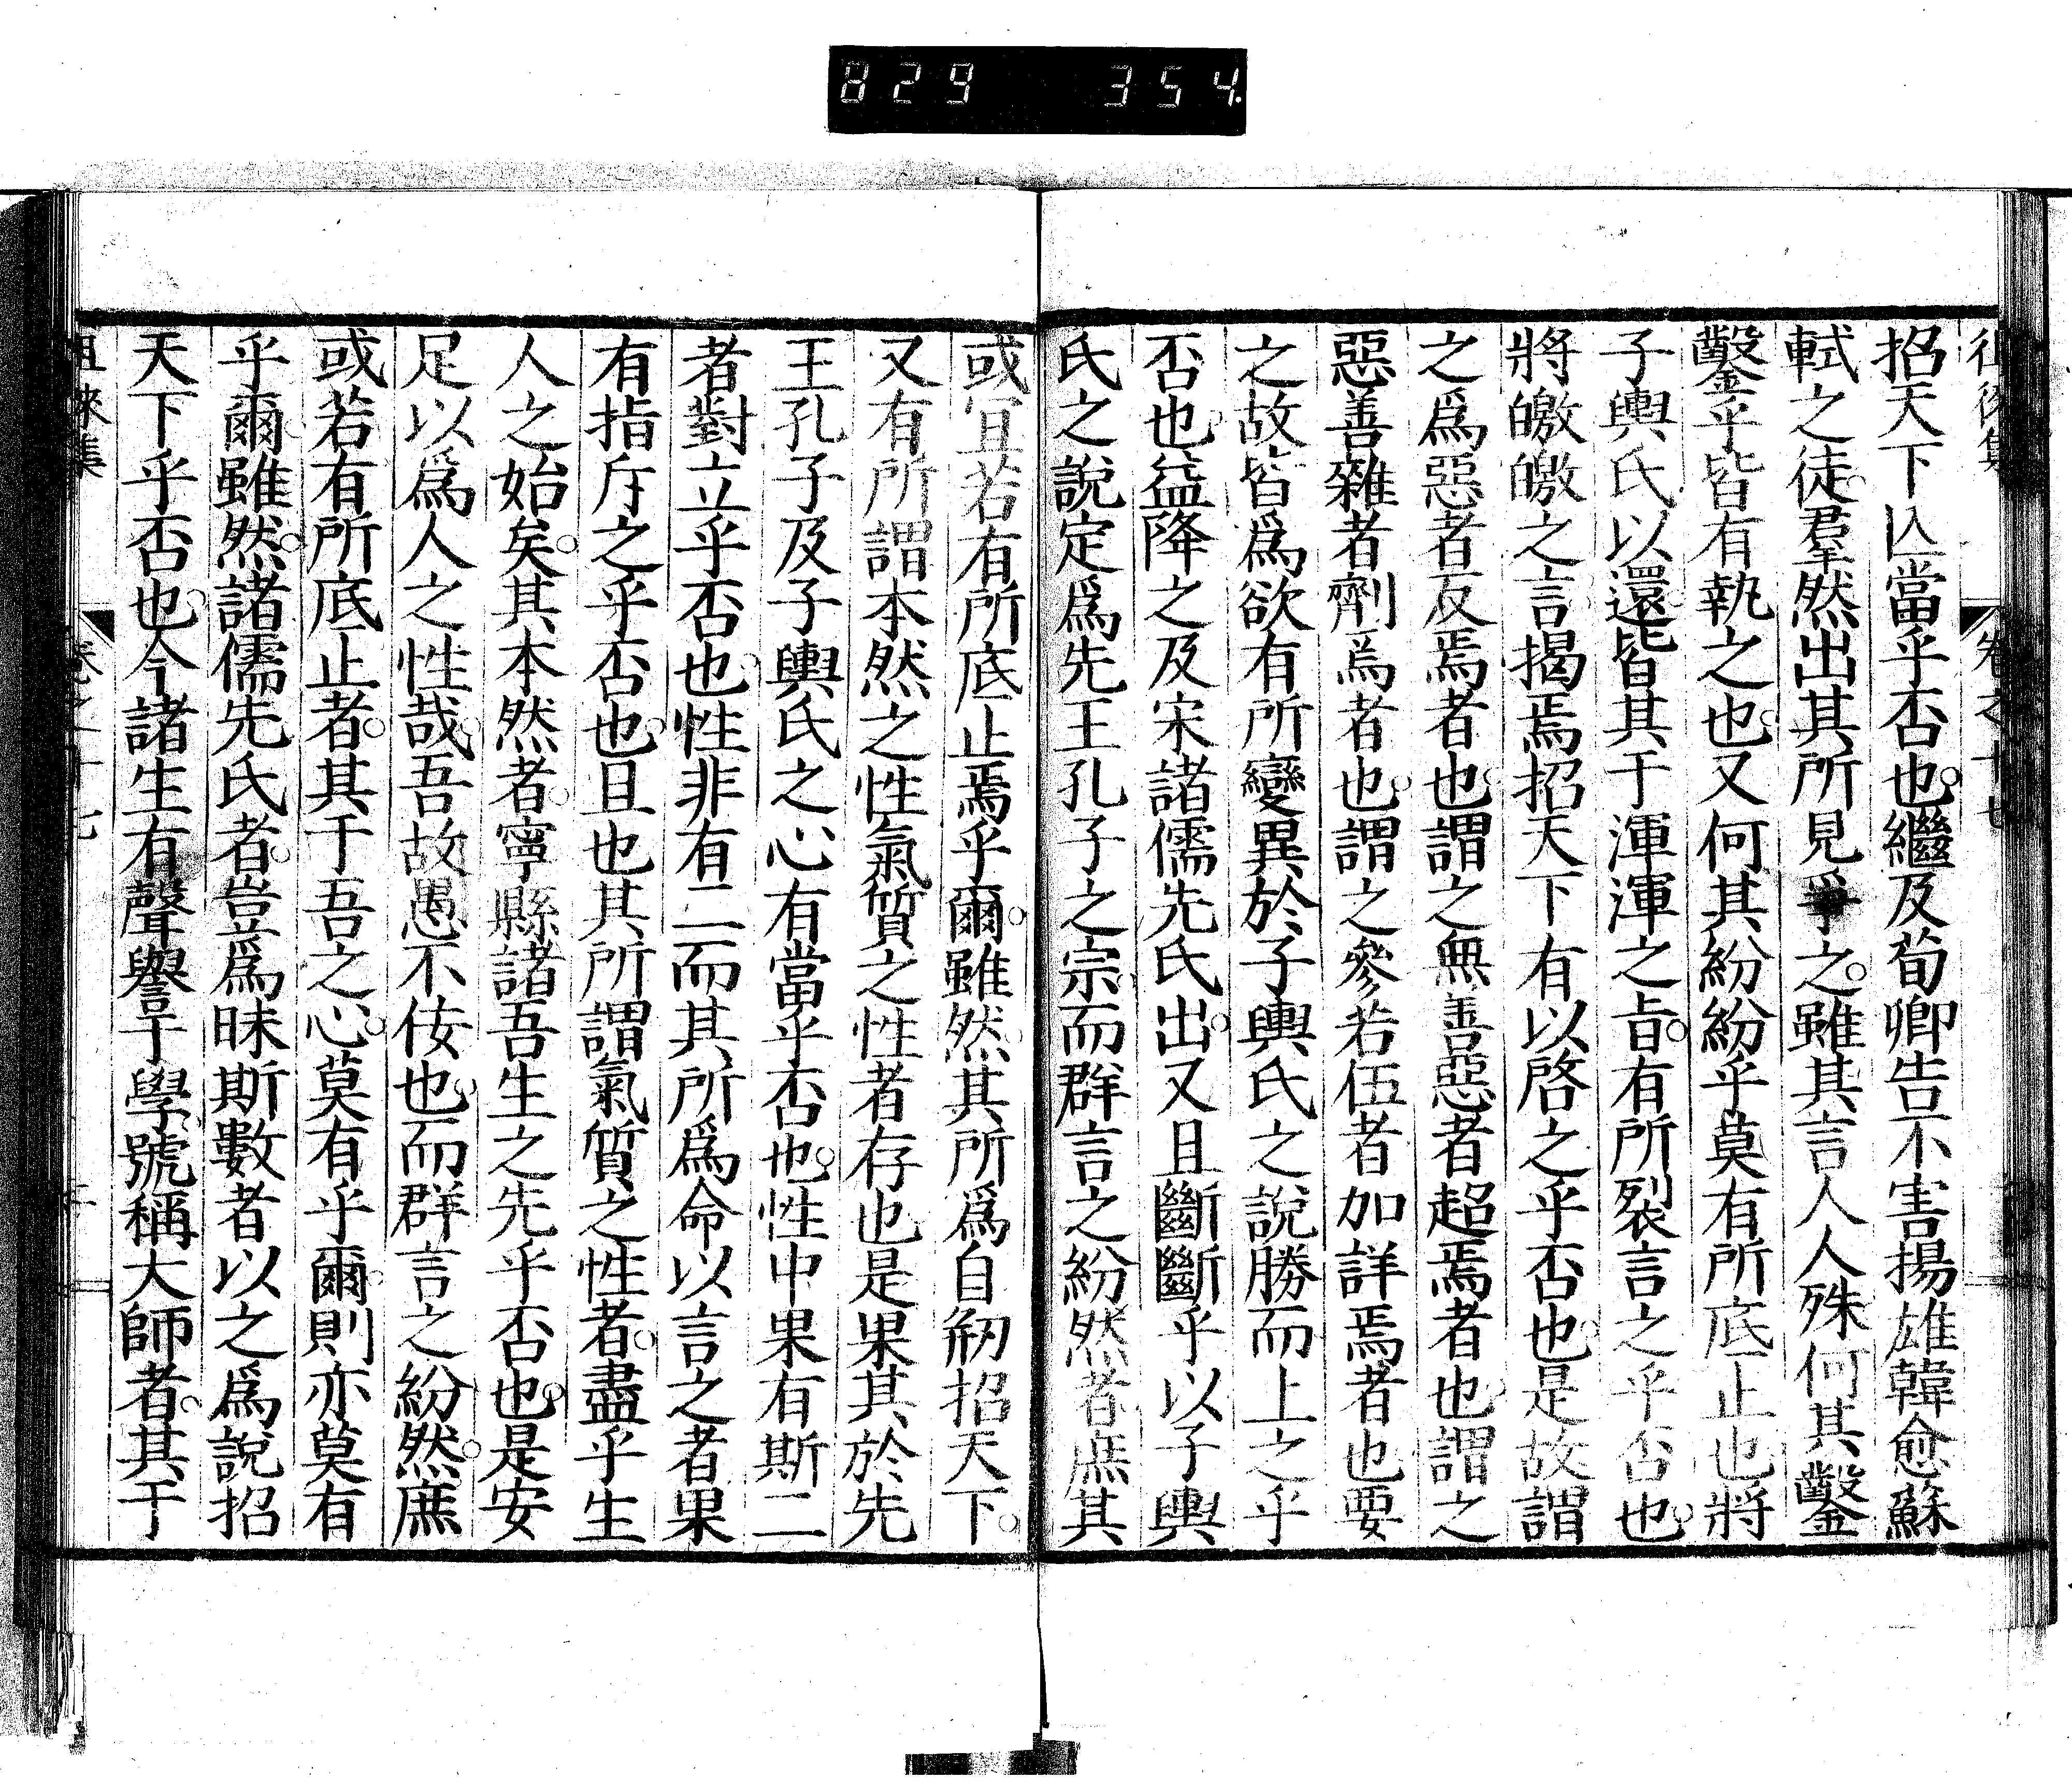 829 354.
徂徠集 卷之十七
招天下亾當乎否也繼及荀卿告不害揚雄韓愈蘇
軾之徒羣然出其所見爭之雖其言人人殊何其鑿
鑿乎皆有執之也又何其紛紛乎莫有所底止也將
子輿氏以還皆其于渾渾之旨有所裂言之乎否也
將曒曒之言揭焉招天下有以啓之乎否也是故謂
之爲惡者反焉者也謂之無善惡者超焉者也謂之
惡善雜者劑焉者也謂之參若伍者加詳焉者也要
之故皆爲欲有所變異於子輿氏之說勝而上之乎
否也益降之及宋諸儒先氏出又且斷斷乎以子輿
氏之說定爲先王孔子之宗而群言之紛然者庶其
或宜若有所底止焉乎爾雖然其所爲自剏招天下
又有所謂本然之性氣質之性者存也是果其於先
王孔子及子輿氏之心有當乎否也性中果有斯二
者對立乎否也性非有二而其所爲命以言之者果
有指斥之乎否也且也其所謂氣質之性者盡乎生
人之始矣其本然者寧縣諸吾生之先乎否也是安
足以爲人之性哉吾故愚不佞也而群言之紛然庶
或若有所底止者其于吾之心莫有乎爾則亦莫有
乎爾雖然諸儒先氏者豈爲昧斯數者以之爲說招
天下乎否也今諸生有聲譽于學號稱大師者其于
徂徠集 卷之十七